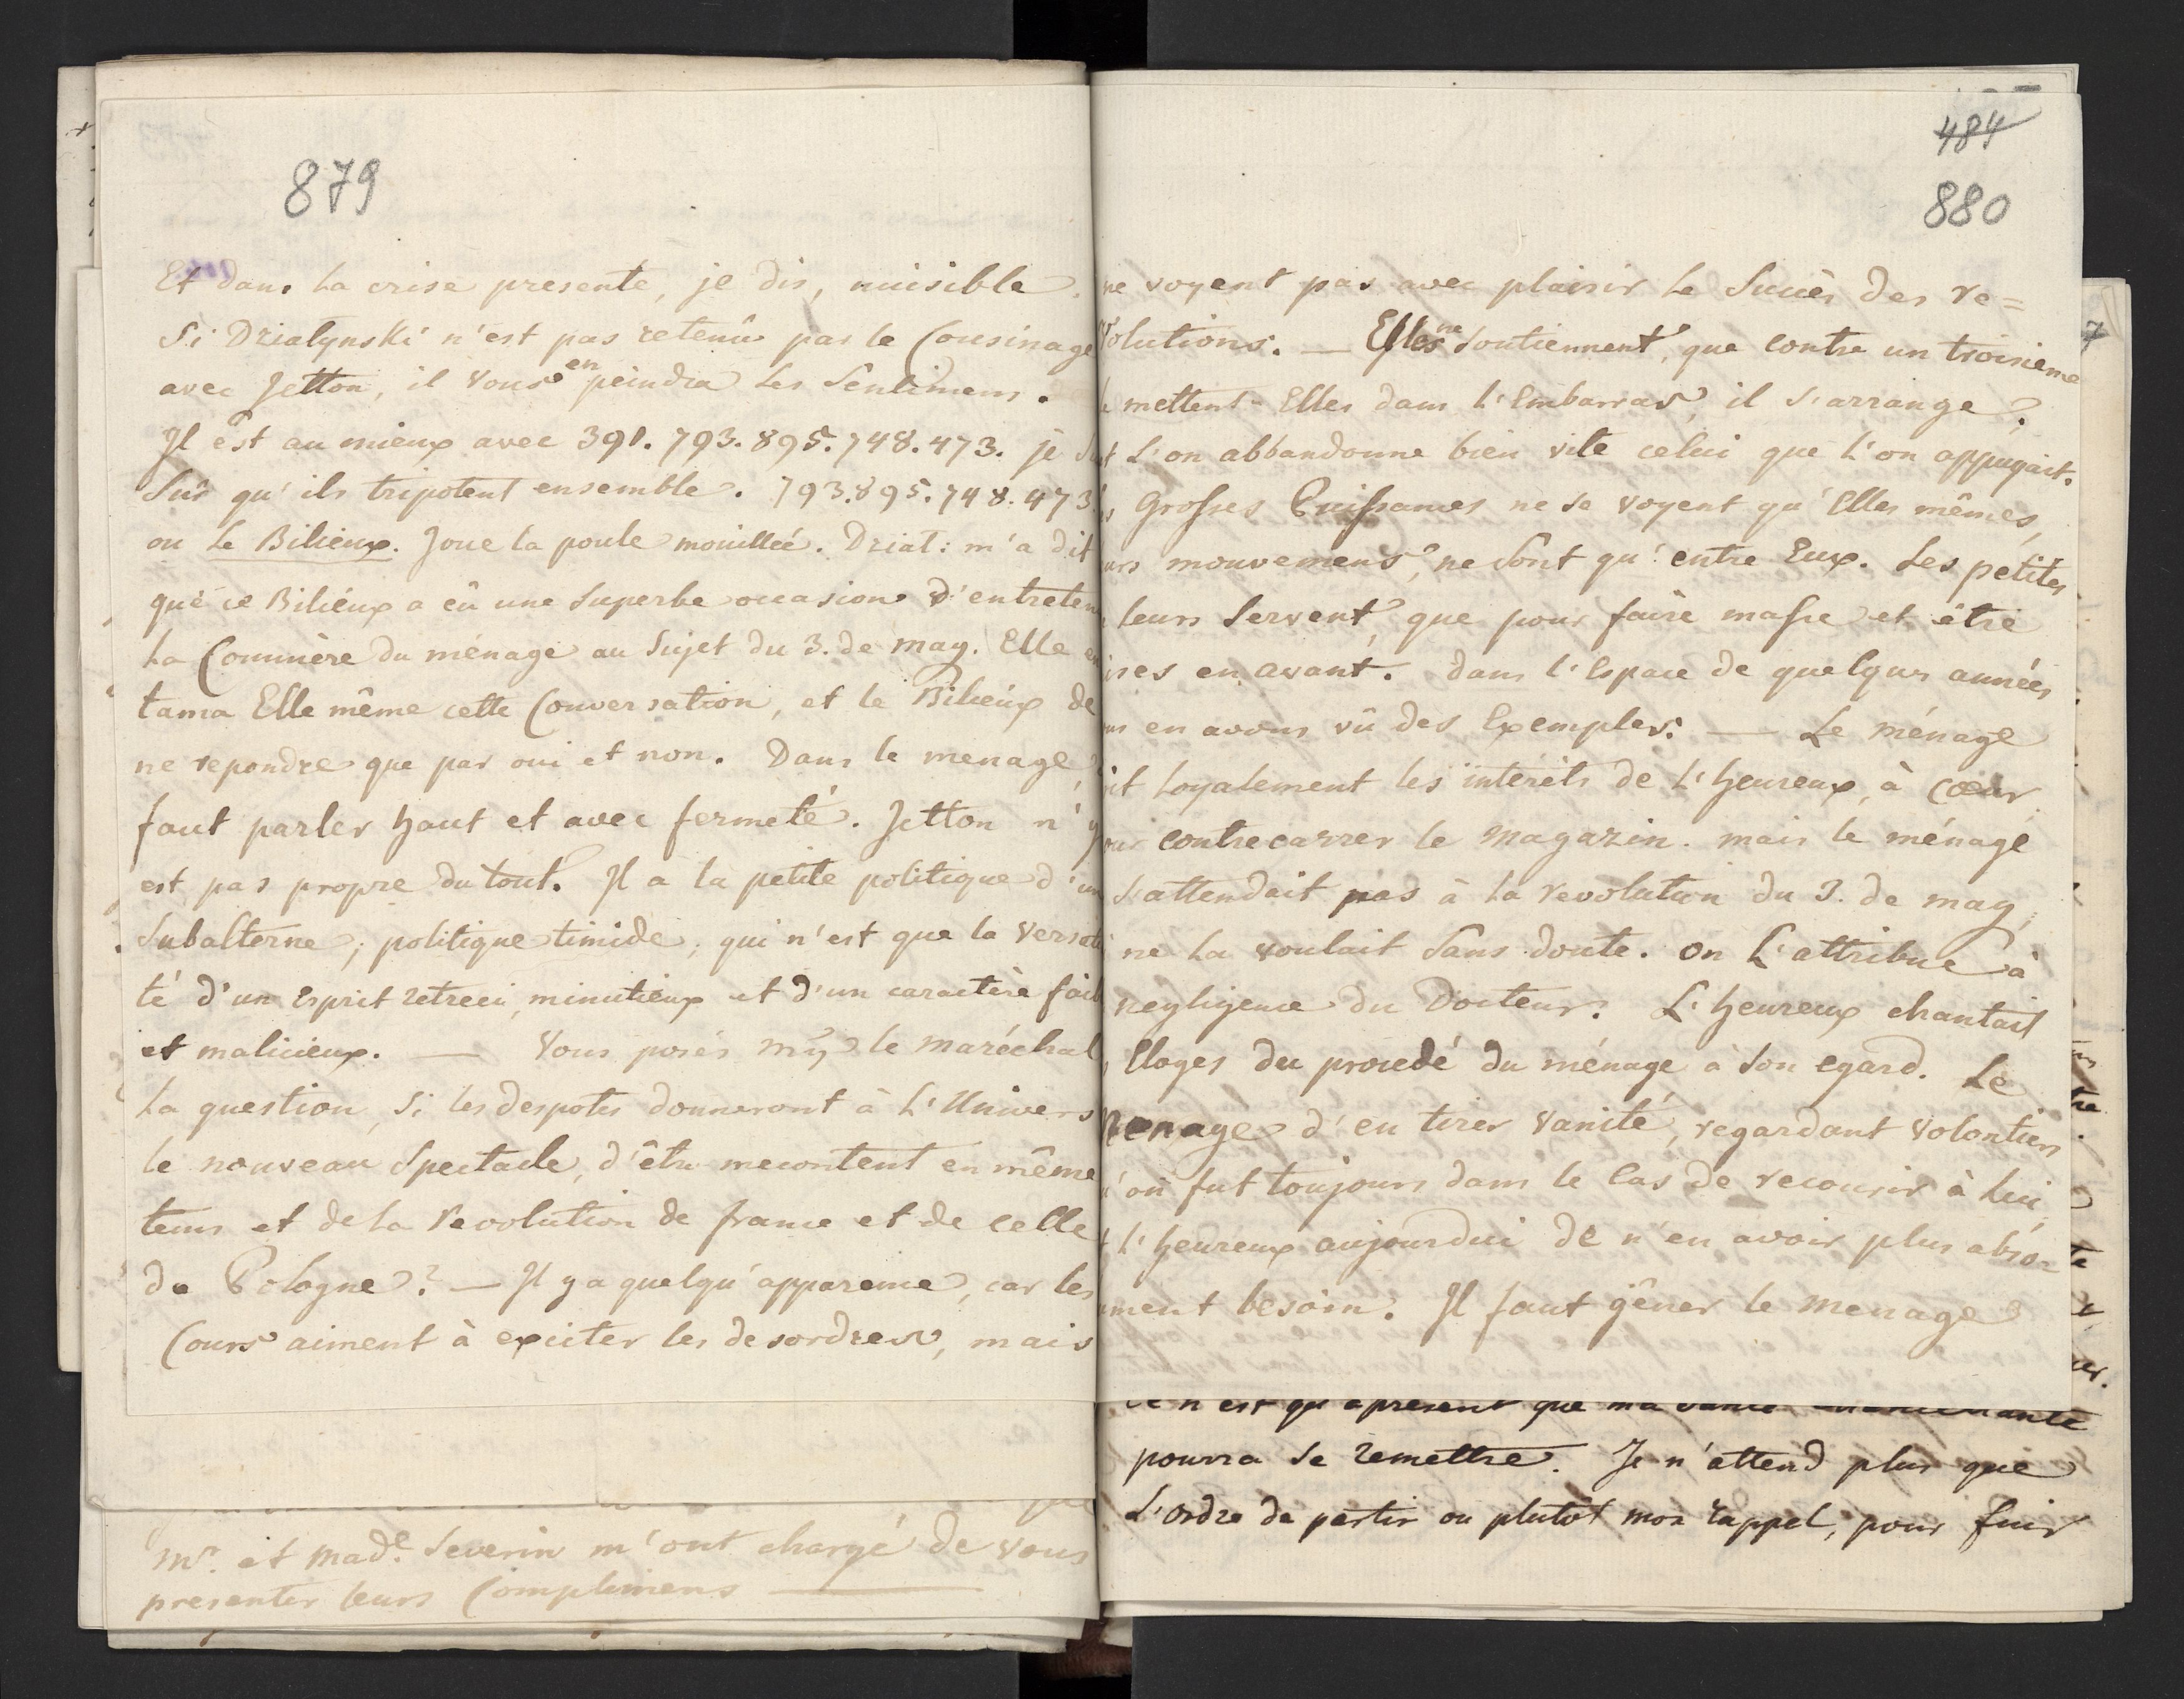 879
Et dans la crise presente, je dis, nuisible.
Si Dzialynski n'est pas retenû par le Cousinage
avec Jetton, il vous en peindra les Sentimens.
Il est au mieux avec 391. 793. 895. 748. 473. je
Sûr qu'ils tripotent ensemble. 793. 895. 748. 473
ou Le Bilieux. Joue la poule mouillée. Dzial: m'a dit
que ce Bilieux a eû une Superbe occasion d'entreten
la Commère du ménage au Sujet du 3. de may. Elle en
tama Elle même cette Conversation, et le Bilieux de
ne repondre que par oui et non. Dans le menage,
faut parler haut et avec fermeté. Jetton n'y
est pas propre du tout. Il a la petite politique d'un
Subalterne; politique timide; qui n'est que la versati
té d'un Esprit retreci, minutieux et d'un caractère foib
et malicieux. — Vous posés le maréchal
la question, si les despotes donneront à l'Univers
le nouveau Spectacle, d'être mecontent en même
tems et de la revolution de france et de celle
de Pologne? — Il y a quelqu'apparence, car les
Cours aiment à exciter les desordres, mais
Mr. et made. Severin m'ont chargé de vous
presenter leurs Complimens —
484
880
ne voyent pas avec plaisir le Succès des re=
volutions. — Elles ne Soutiennent, que contre un troisieme
mettent-Elles dans l'Embarras, il s'arrange?
et l'on abbandonne bien vite celui que l'on appuyait.
Grosses Puissances ne se voyent qu'Elles mêmes,
urs mouvemens, ne Sont qu'entre Eux. Les petites
leurs Servent, que pour faire masse et être
ises en avant. dans l'Espace de quelques années
us en avons vû des Exemples. — Le ménage
it loyalement les interêts de l'heureux, à cœur
our contrecarrer le Magazin. mais le ménage
s'attendait pas à la revolution du 3. de may,
ne la voulait Sans doute. on l'attribue à
negligence du Docteur. L'heureux chantait
Eloges du procedé du ménage à Son egard. Le
Menage d'en tirer vanité, regardant volontiers
qu'on fut toujours dans le Cas de recourir à lui,
t l'heureux aujourdui de n'en avoir plus abso=
ument besoin. Il faut gêner le menage
Ce n'est qu'apresent que ma
pourra se remettre. Je n'attend plus que
L'ordre de partir ou plutot mon rappel, pour fuir